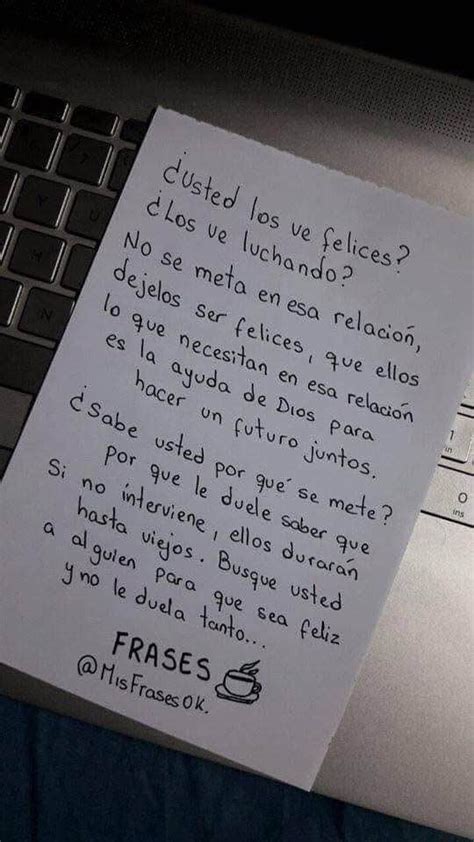 ¿Usted los ve felices?
¿Los ve luchando?
No se meta en esa relación,
dejelos ser felices, que ellos
lo que necesitan en esa relación
es la ayuda de Dios para
hacer un futuro juntos.
¿Sabe usted por qué se mete?
Por que le duele saber que
Si no interviene, ellos durarán
hasta viejos. Busque usted
a alguien para que sea feliz
y no le duela tanto...
FRASES
@MisFrasesOK.
N
1
in
0
ins